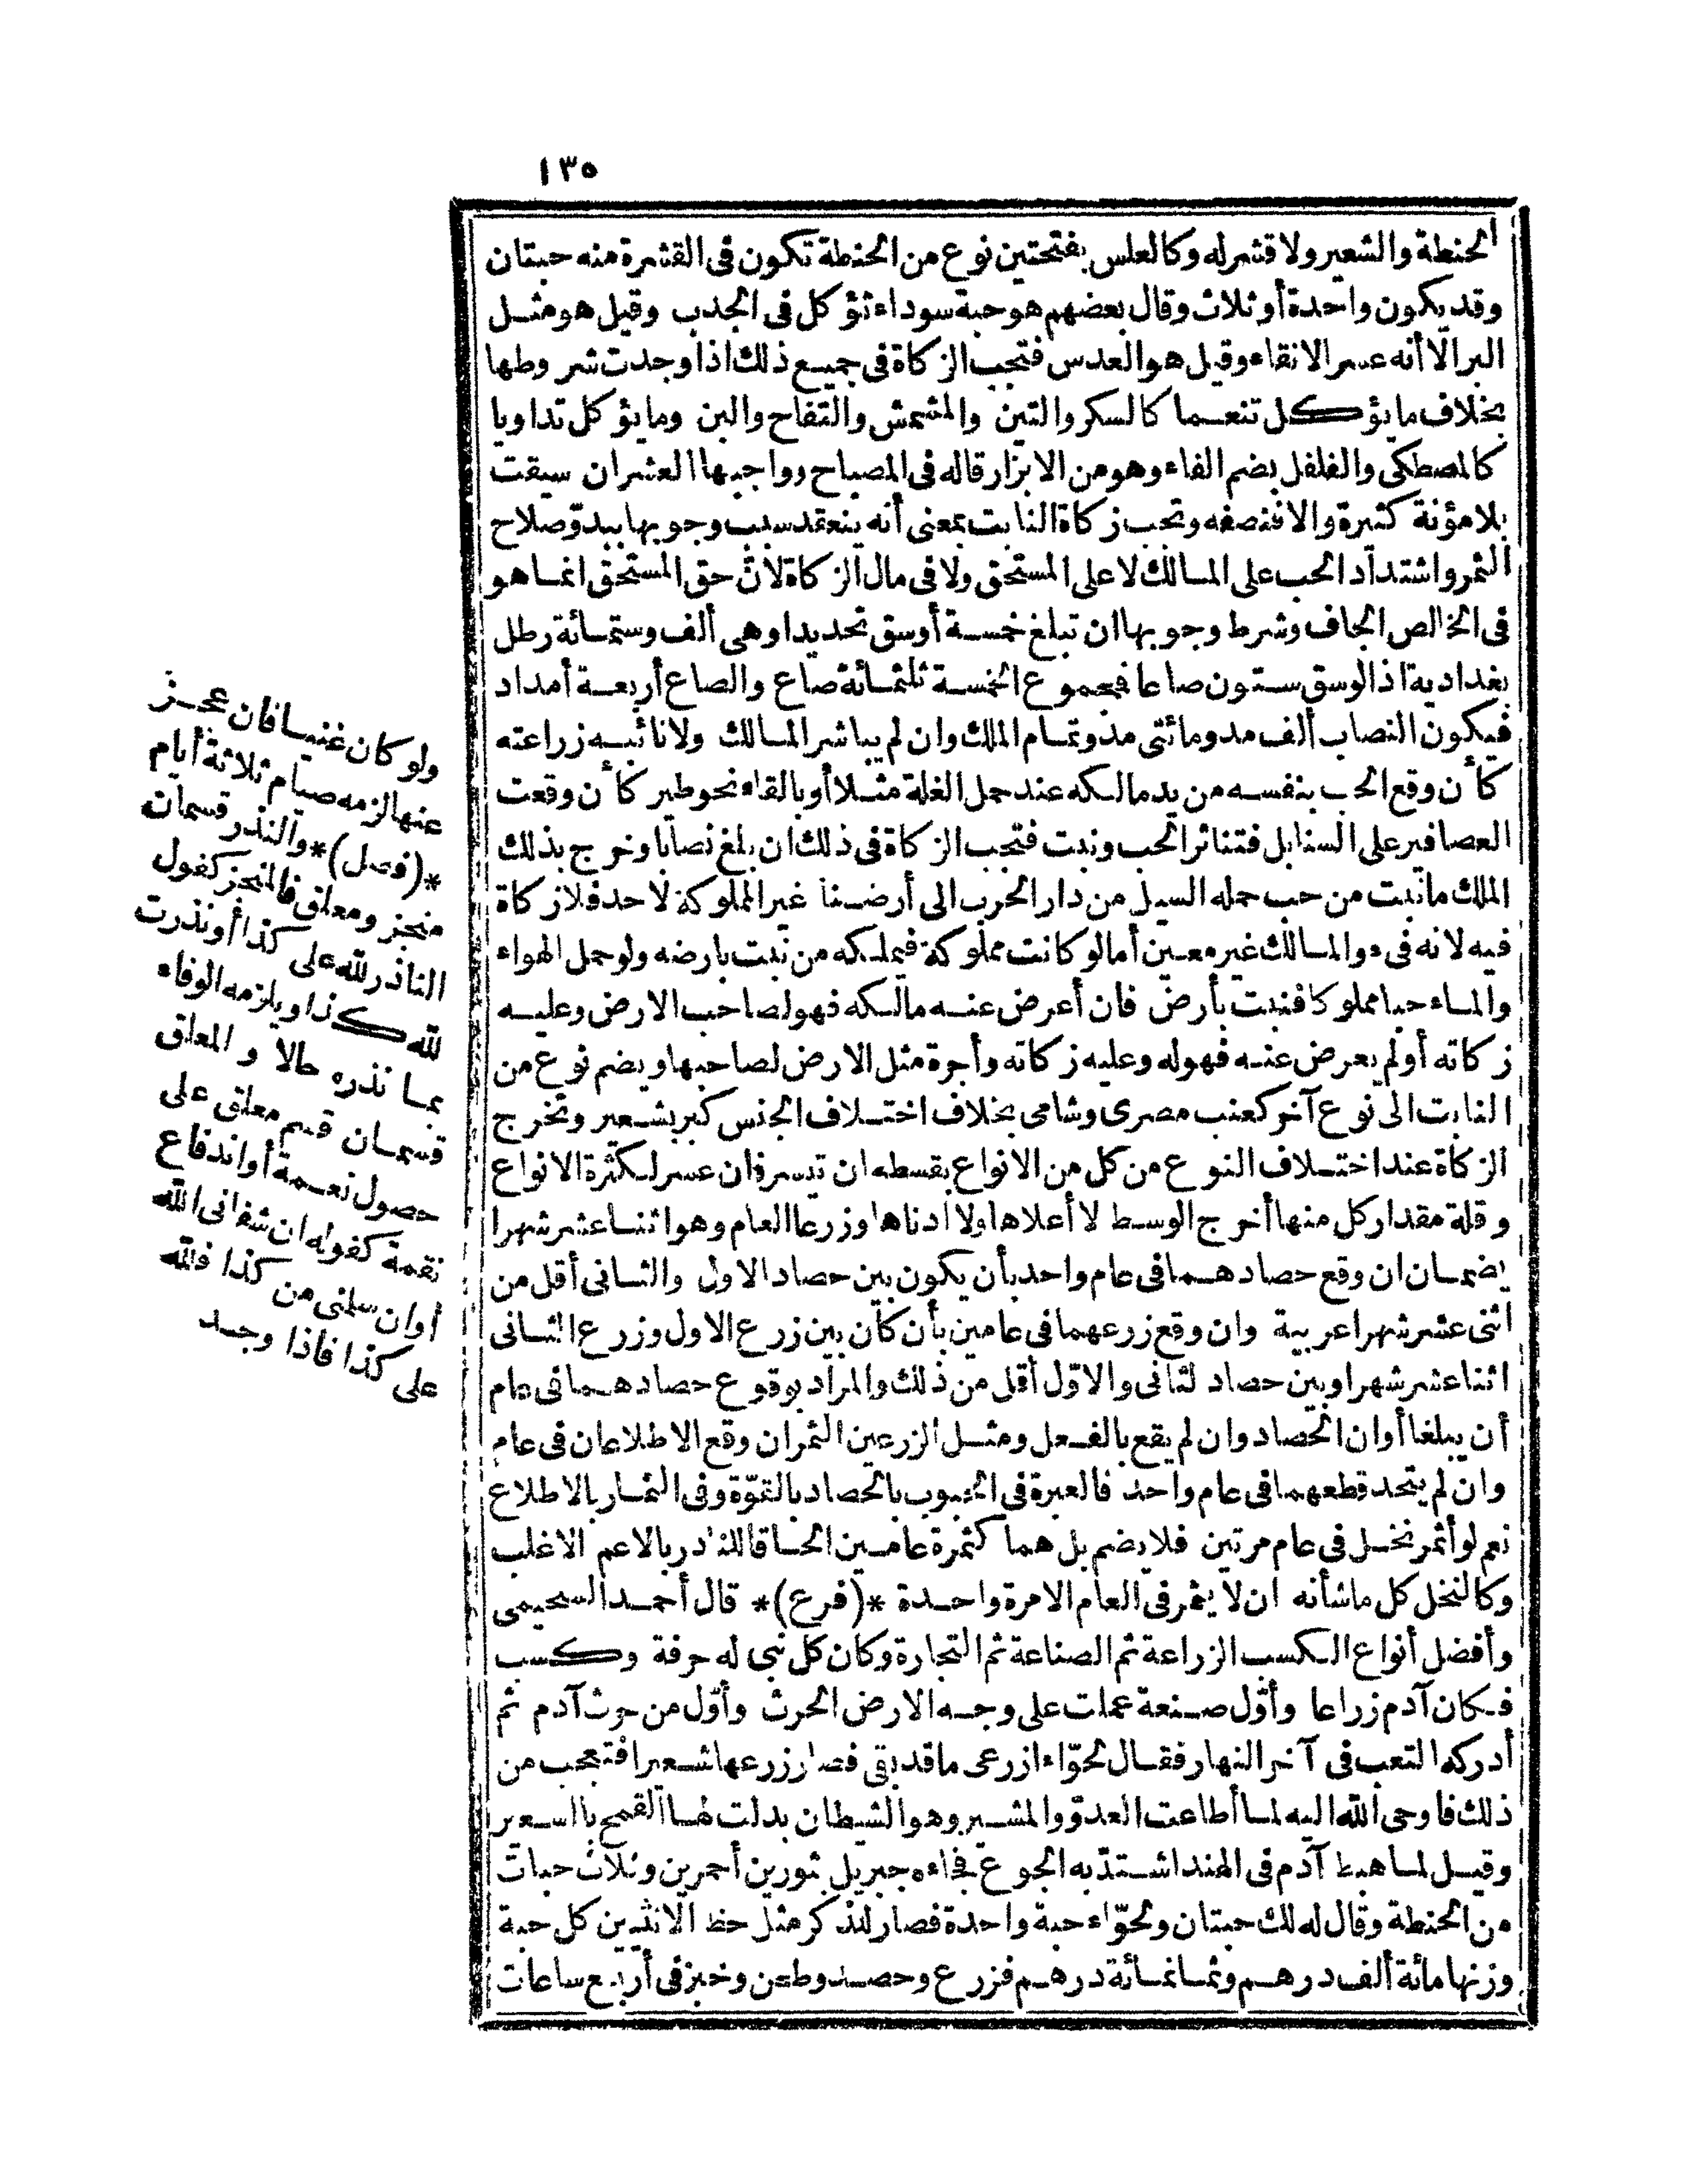 ١٣٥
الحنطة والشعير ولا قشر له وكالعلس بفتحتين نوع من الحنطة تكون فى القشرة منه حبتان
وقد يكون واحدة أو ثلاث وقال بعضهم هو حبة سوداء تؤكل فى الجدب وقيل هو مثل
البر الا أنه عسر الانقاء وقيل هو العدس فتجب الزكاة فى جميع ذلك اذا وجدت شروطها
بخلاف ما يؤكل تنعما كالسكر والتين والمشمش والتفاح والبن وما يؤكل تداويا
كالمصطكى والفلفل بضم الفاء وهو من الابزار قاله فى المصباح وواجبها العشران سيقت
بلا مؤنة كثيرة والا فنصفه وتجب زكاة النابت بمعنى أنه ينعقد سبب وجوبها ببدوّ صلاح
الثمر واشتداد الحب على المالك لا على المستحق ولا فى مال الزكاة لانّ حق المستحق انما هو
فى الخالص الجاف وشرط وجوبها ان تبلغ خمسة أوسق تحديدا وهى ألف وستمائة رطل
بغدادية اذ الوسق ستون صاعا فمجموع الخمسة ثلثمائة صاع والصاع أربعة أمداد
فيكون النصاب ألف مد ومائتى مدّ وتمام الملك وان لم يباشر المالك ولا نائبه زراعته
كأن وقع الحب بنفسه من يد مالكه عند حمل الغلة مثلا أو بالقاء نحو طير كأن وقعت
العصافير على السنابل فتناثر الحب ونبت فتجب الزكاة فى ذلك ان بلغ نصابا وخرج بذلك
الملك ما نبت من حب حمله السيل من دار الحرب الى أرضنا غير المملوكة لاحد فلا زكاة
فيه لانه فىء والمالك غير معين أما لو كانت مملوكة فيملكه من نبت بارضه ولو حمل الهواء
والماء حبا مملوكا فنبت بأرض فان أعرض عنه مالكه فهو لصاحب الارض وعليه
زكاته أو لم يعرض عنه فهو له وعليه زكاته وأجرة مثل الارض لصاحبها ويضم نوع من
النابت الى نوع آخر كعنب مصرى وشامى بخلاف اختلاف الجنس كبر بشعير وتخرج
الزكاة عند اختلاف النوع من كل من الانواع بقسطه ان تيسر فان عسر لكثرة الانواع
وقلة مقدار كل منها أخرج الوسط لا أعلاها ولا ادناها وزرعا العام وهو اثنا عشر شهرا
يضمان ان وقع حصادهما فى عام واحد بأن يكون بين حصاد الاول والثانى أقل من
اثنى عشر شهرا عربية وان وقع زرعهما فى عامين بأن كان بين زرع الاول وزرع الثانى
اثنا عشر شهرا وبين حصاد لثانى والاوّل أقل من ذلك والمراد بوقوع حصادهما فى عام
أن يبلغا أوان الحصاد وان لم يقع بالفعل ومثل الزرعين الثمران وقع الاطلاعان فى عام
وان لم يتحد قطعهما فى عام واحد فالعبرة فى الحبوب بالحصاد بالقوّة وفى الثمار بالاطلاع
نعم لو أثمر نخل فى عام مرتين فلا يضم بل هما كثمرة عامين الحاقا للنادر بالاعم الاغلب
وكالنخل كل ما شأنه ان لا يثمر فى العام الا مرة واحدة *(فرع)* قال أحمد السحيمى
وأفضل أنواع الكسب الزراعة ثم الصناعة ثم التجارة وكان كل نبى له حرفة وكسب
فكان آدم زراعا وأوّل صنعة عملت على وجه الارض الحرث وأوّل من حرث آدم ثم
أدركه التعب فى آخر النهار فقال لحوّاء ازرعى ما قد بقى فصار زرعها شعيرا فتعجب من
ذلك فاوحى الله اليه لما أطاعت العدوّ والمشير وهو الشيطان بدلت لها القمح بالشعير
وقيل لما هبط آدم فى الهند اشتدّ به الجوع فجاءه جبريل بثورين أحمرين وثلاث حبات
من الحنطة وقال له لك حبتان ولحوّاء حبة واحدة فصار للذكر مثل حظ الانثيين كل حبة
وزنها مائة ألف درهم وثمانمائة درهم فزرع وحصد وطحن وخبز فى أربع ساعات
ولو كان غنيا فان عجز
عنها لزمه صيام ثلاثة أيام
*(فصل)* والنذر قسمان
منجز ومعلق فالمنجز كقول
الناذر لله على كذا أو نذرت
لله كذا ويلزمه الوفاء
بما نذره حالا والمعلق
قسمان قسم معلق على
حصول نعمة أو اندفاع
نقمة كقوله ان شفانى الله
أو ان سلمنى من كذا فلله
على كذا فاذا وجد